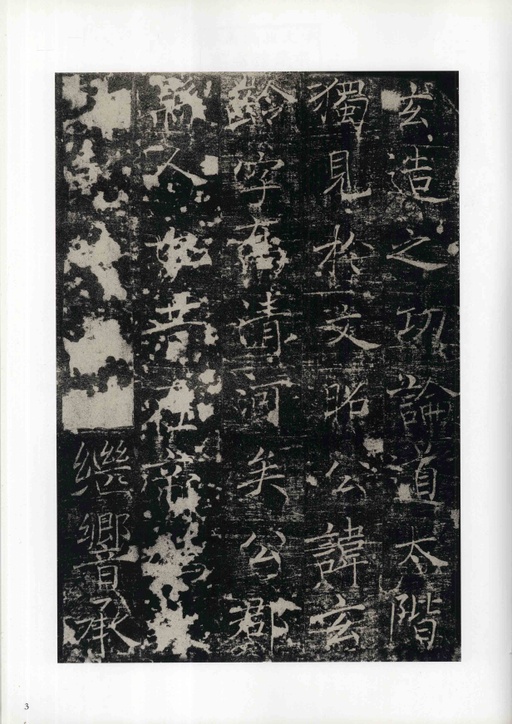 玄造之功論道太階
獨見於文昭公諱玄
齡字喬清河矣公郡
人 昔在
繼響承
3